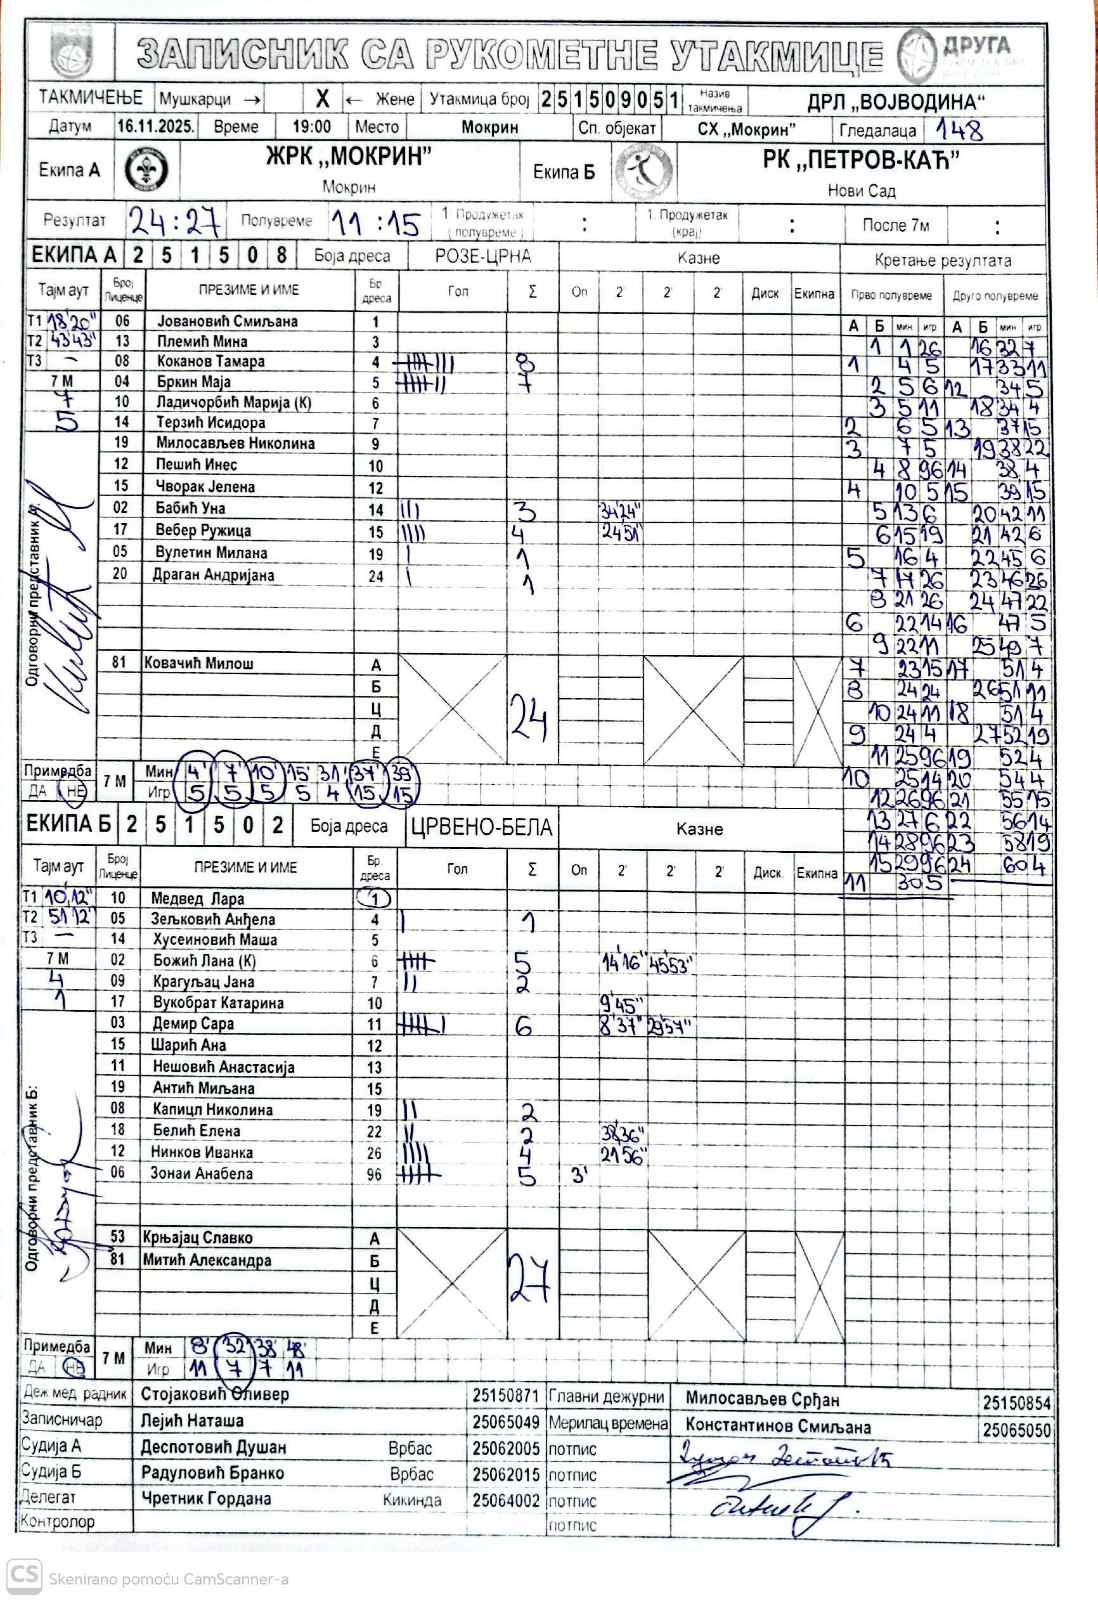 ЗАПИСНИК СА РУКОМЕТНЕ УТАКМИЦЕ ДРУГА
ТАКМИЧЕЊЕ Мушкарци → X ← Жене Утакмица број 251509051 Назив такмичења ДРЛ „ВОЈВОДИНА“
Датум 16.11.2025. Време 19:00 Место Мокрин Сп. објекат СХ „Мокрин” Гледалаца 148
Екипа А ЖРК „МОКРИН” Мокрин Екипа Б РК „ПЕТРОВ-КАЋ” Нови Сад
Резултат 24:27 Полувреме 11:15 1 Продужетак (полувреме) : 1. Продужетак (крај) : После 7м :
ЕКИПА А 251508 Боја дреса РОЗЕ-ЦРНА Казне Кретање резултата
Тајм аут Број Лиценце ПРЕЗИМЕ И ИМЕ Бр дреса Гол Σ Оп 2 2' 2 Диск Екипна Прво полувреме Друго полувреме
А Б мин игр А Б мин игр
Т1 18'20" 06 Јовановић Смиљана 1
Т2 43'43" 13 Племић Мина 3
Т3 – 08 Коканов Тамара 4 8
7 М 04 Бркин Маја 5 7
7 10 Ладичорбић Марија (К) 6
5 14 Терзић Исидора 7
19 Милосављев Николина 9
12 Пешић Инес 10
15 Чворак Јелена 12
02 Бабић Уна 14 ||| 3 34'24"
17 Вебер Ружица 15 |||| 4 24'51"
05 Вулетин Милана 19 | 1
20 Драган Андријана 24 | 1
81 Ковачић Милош А
Б
Ц 24
Д
Е
Одговорни представник А:
1 1 26 16 32 7
1 4 5 17 33 11
2 5 6 12 34 5
3 5 11 18 34 4
2 6 5 13 37 15
3 7 5 19 38 22
4 8 96 14 38 4
4 10 5 15 39 15
5 13 6 20 42 11
6 15 19 21 42 6
5 16 4 22 45 6
7 17 26 23 46 26
8 21 26 24 47 22
6 22 14 16 47 5
9 22 11 25 49 7
7 23 15 17 51 4
8 24 24 26 51 11
10 24 11 18 51 4
9 24 4 27 52 19
11 25 96 19 52 4
10 25 14 20 54 4
12 26 96 21 55 15
13 27 6 22 56 14
14 28 96 23 58 19
15 29 96 24 60 4
11 30 5
Примедба ДА НЕ 7 М Мин 4' 7' 10' 15' 31' 37' 39
Игр 5 5 5 5 4 15 15
ЕКИПА Б 251502 Боја дреса ЦРВЕНО-БЕЛА Казне
Тајм аут Број Лиценце ПРЕЗИМЕ И ИМЕ Бр дреса Гол Σ Оп 2' 2' 2' Диск Екипна
Т1 10'12" 10 Медвед Лара 1
Т2 51'12" 05 Зељковић Анђела 4 | 1
Т3 – 14 Хусеиновић Маша 5
7 М 02 Божић Лана (К) 6 5 14'16" 45'53"
4 09 Крагуљац Јана 7 || 2
1 17 Вукобрат Катарина 10 9'45"
03 Демир Сара 11 6 8'37" 29'57"
15 Шарић Ана 12
11 Нешовић Анастасија 13
19 Антић Миљана 15
08 Капицл Николина 19 || 2
18 Белић Елена 22 || 2 38'36"
12 Нинков Иванка 26 |||| 4 21'56"
06 Зонаи Анабела 96 5 3'
53 Крњајац Славко А
81 Митић Александра Б
Ц 27
Д
Е
Одговорни представник Б:
Примедба ДА НЕ 7 М Мин 8' 32' 38' 48'
Игр 11 7 7 11
Деж мед. радник Стојаковић Оливер 25150871 Главни дежурни Милосављев Срђан 25150854
Записничар Лејић Наташа 25065049 Мерилац времена Константинов Смиљана 25065050
Судија А Деспотовић Душан Врбас 25062005 потпис
Судија Б Радуловић Бранко Врбас 25062015 потпис
Делегат Чретник Гордана Кикинда 25064002 потпис
Контролор потпис
CS Skenirano pomoću CamScanner-a